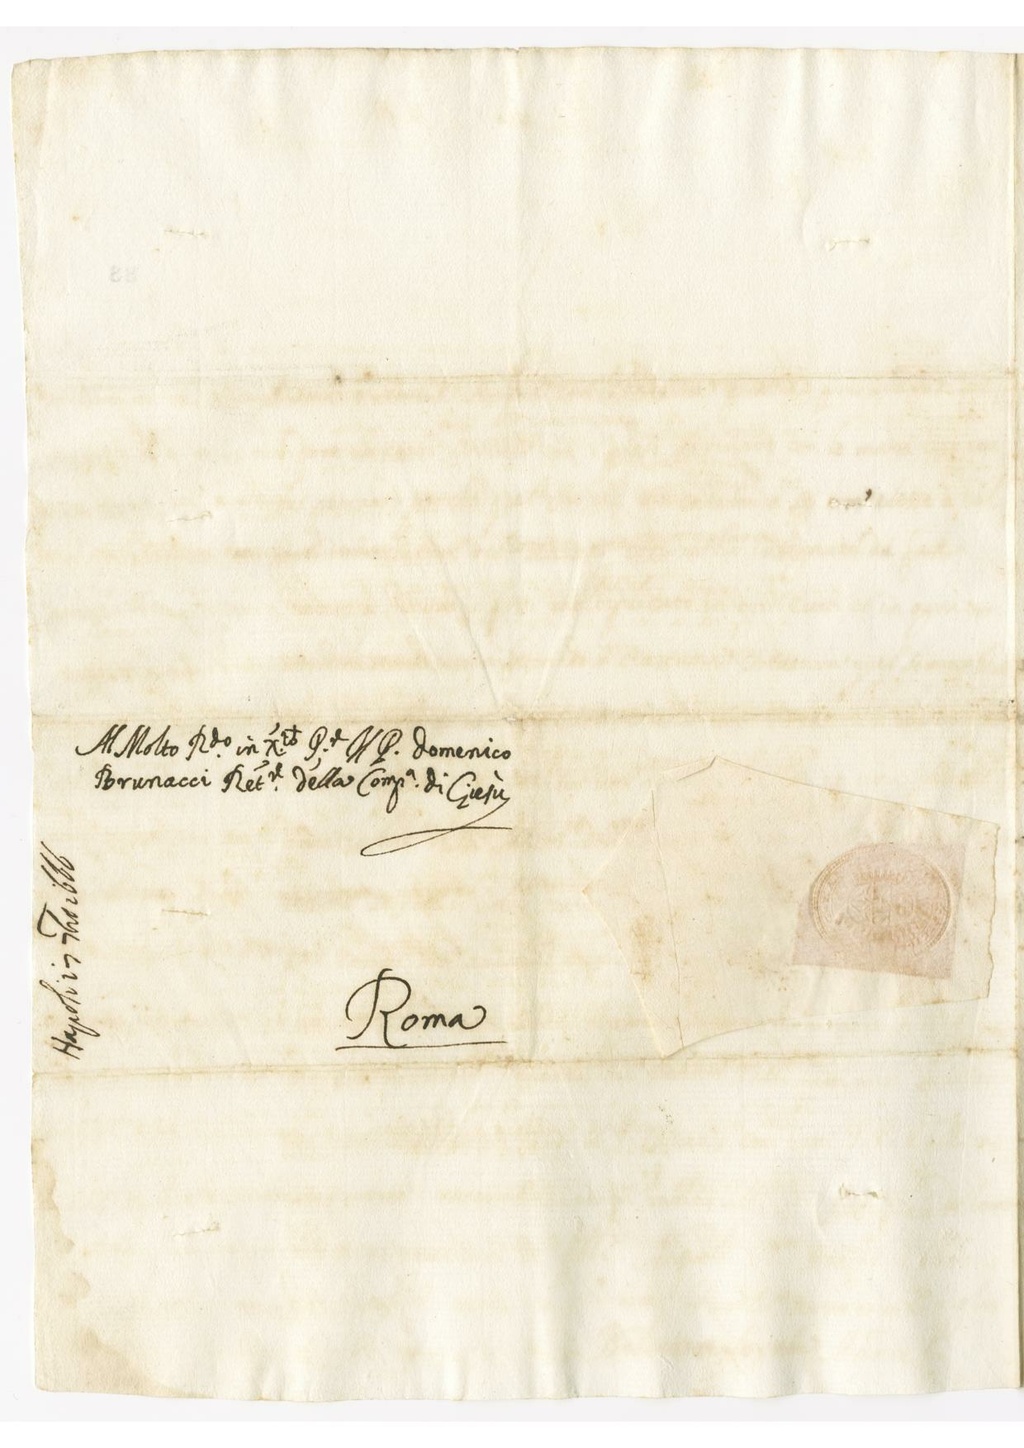 Al Molto R.do in X.sto P.re Il P. Domenico
Brunacci Ret.re della Comp.a di Giesù
Roma
Napoli 17